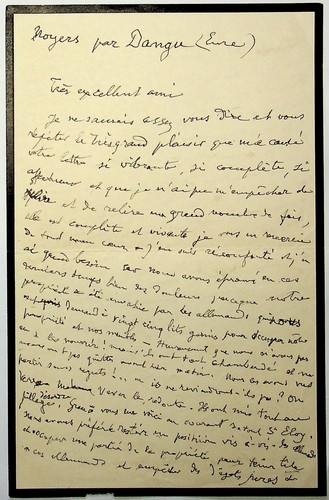 Noyers par Dangu (Eure)
Très excellent ami
Je ne saurais assez vous dire et vous
répéter le très grand plaisir que m'a causé
votre lettre si vibrante, si complète, si
affectueuse et que je n'ai pu m'empêcher de
lire et de relire un grand nombre de fois,
elle est complète et vivante je vous en remercie
de tout mon cœur. J'en suis réconforté et j'en
ai grand besoin car nous avons éprouvé en ces
derniers temps bien des douleurs, puisque notre
propriété a été envahie par les allemands
demandé à vingt cinq lits garnis pour occuper notre
propriété et nos meubles — Heureusement que nous n'avons pas
eu à les nourrir! mais ils ont tout chambardé et ne
partir sans regrets! ... reviendront-ils pas? On
Madame verser la redoute. Ils ont mis tout au
pillage. Grâce vous me voici au courant St Eloy.
nous avons préféré rester en position vis-à-vis
d'occuper une partie de la propriété pour tenir tête
à ces allemands et empêcher des dégâts